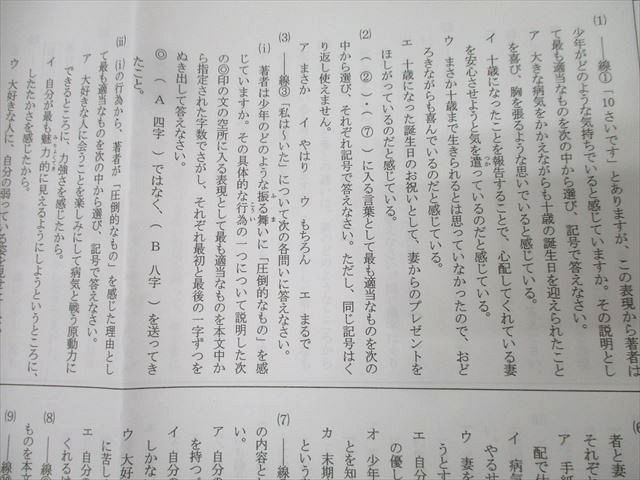 (1) ――線①「10さいです」とありますが、この表現から著者は
少年がどのような気持ちでいると感じていますか。その説明とし
て最も適当なものを次の中から選び、記号で答えなさい。
ア 大きな病気をかかえながらも十歳の誕生日を迎えられたこと
を喜び、胸を張るような思いでいると感じている。
イ 十歳になったことを報告することで、心配してくれている妻
を安心させようと気を遣っているのだと感じている。
ウ まさか十歳まで生きられるとは思っていなかったので、おど
ろきながらも喜んでいるのだと感じている。
エ 十歳になった誕生日のお祝いとして、妻からのプレゼントを
ほしがっているのだと感じている。
(2) ( ② )・( ⑦ )に入る言葉として最も適当なものを次の
中から選び、それぞれ記号で答えなさい。ただし、同じ記号はく
り返し使えません。
ア まさか イ やはり ウ もちろん エ まるで
(3) ――線③「私はしいた」について次の各問いに答えなさい。
(i) 著者は少年のどのような振る舞いに「圧倒的なもの」を感
じていますか。その具体的な行為の一つについて説明した次
の◎印の文の空所に入る表現として最も適当なものを本文中か
ら指定された字数でさがし、それぞれ最初と最後の一字ずつを
ぬき出して答えなさい。
◎ ( A 四字 )ではなく、( B 八字 )を送ってき
たこと。
(ii) (iの行為から、著者が「圧倒的なもの」を感じた理由とし
て最も適当なものを次の中から選び、記号で答えなさい。
ア 大好きな人に会うことを楽しみにして病気と戦う原動力に
できるところに、力強さを感じたから。
イ 自分が最も魅力的に見えるようにしようというところに、
したたかさを感じたから。
ウ 大好きな人に、自分の弱っている姿を見せ
者と妻
それぞれ
ア 手紙
配で仕
イ 病気
やるせ
ウ 妻を
うとす
エ 自分
の優し
オ 少年
とを知
カ 末期
という
(7) ――線
の内容と
い。
ア 自分の
を持つ
イ 自分の
しかな
ウ 大好
に苦し
エ 自分
くれるは
(8) ――線
ものを本文
(9) ――線